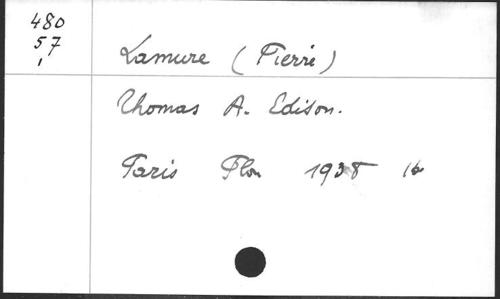 480
57
1
Lamure (Pierre)
Thomas A. Edison.
Paris Plon 1938 16